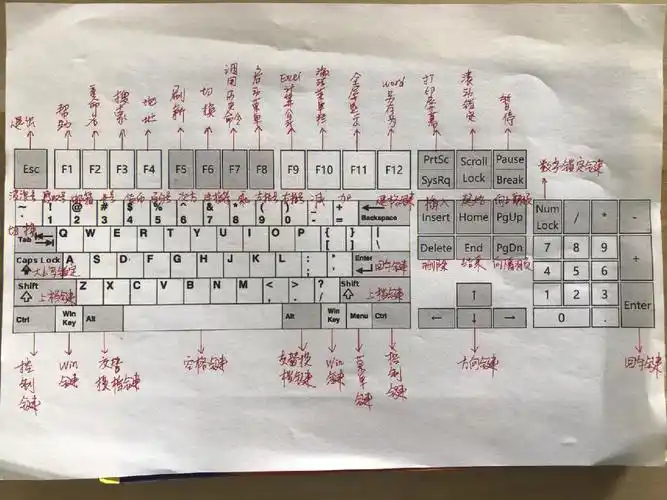 退出 帮助 重命名 搜索 地址 刷新 切换 调用历史命令 Excel 全屏显示 word 打印屏幕 滚动锁定 暂停
数字锁定键
Esc F1 F2 F3 F4 F5 F6 F7 F8 F9 F10 F11 F12 PrtSc SysRq Scroll Lock Pause Break
退格键 插入
~ ! @ # $ % ^ & * ( ) _ +
1 2 3 4 5 6 7 8 9 0 - = Backspace
Insert Home PgUp Num Lock / * -
切换
Tab Q W E R T Y U I O P { [ } ] | \
Delete End PgDn 7 8 9 +
删除 结束 向下翻页
Caps Lock A S D F G H J K L : ; " ' Enter
大小写锁定 回车键
4 5 6
Shift Z X C V B N M < , > . ? / Shift
上档键 上档键
↑ 1 2 3 Enter
Ctrl Win Key Alt Alt Win Key Menu Ctrl
← ↓ → 0 .
控制键 Win键 交替换档键 空格键 交替换档键 Win键 菜单键 控制键 方向键 回车键